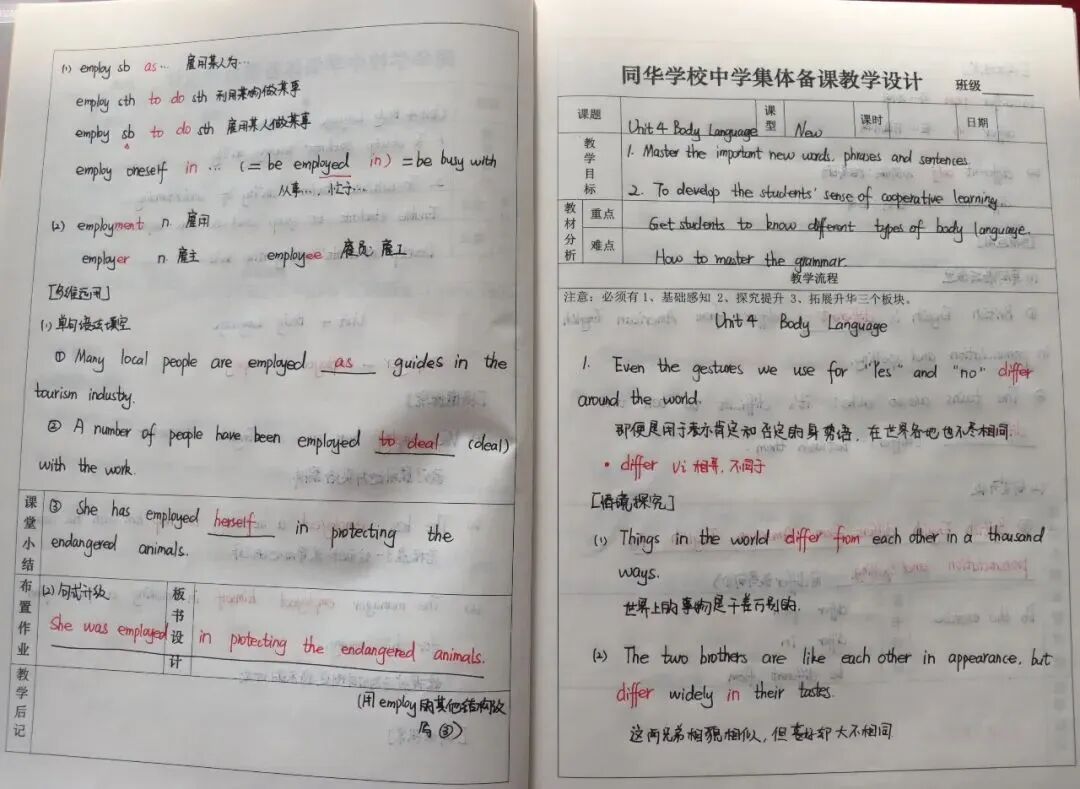 (1) employ sb as… 雇用某人为…
employ sth to do sth 利用某物做某事
employ sb to do sth 雇用某人做某事
employ oneself in … (= be employed in) = be busy with
从事…, 忙于…
(2) employment n. 雇用
employer n. 雇主 employee 雇员; 雇工
[多维运用]
(1) 单句语法填空
① Many local people are employed as guides in the
tourism industry.
② A number of people have been employed to deal (deal)
with the work.
课堂小结
③ She has employed herself in protecting the
endangered animals.
布置作业
(2) 句式升级
板书设计
She was employed in protecting the endangered animals.
教学后记
(用 employ 的其他结构改
写 ③)
同华学校中学集体备课教学设计 班级
课题 Unit 4 Body Language 课型 New 课时 日期
教学目标
1. Master the important new words, phrases and sentences.
2. To develop the students' sense of cooperative learning.
教材分析
重点 Get students to know different types of body language.
难点 How to master the grammar.
教学流程
注意：必须有 1、基础感知 2、探究提升 3、拓展升华三个板块。
Unit 4 Body Language
1. Even the gestures we use for "Yes" and "no" differ
around the world.
即便是用于表示肯定和否定的身势语, 在世界各地也不尽相同.
• differ vi 相异, 不同于
[语境探究]
(1) Things in the world differ from each other in a thousand
ways.
世界上的事物是千差万别的.
(2) The two brothers are like each other in appearance, but
differ widely in their tastes.
这两兄弟相貌相似, 但喜好却大不相同